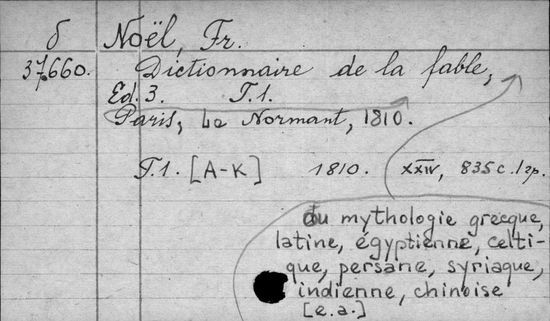 б Noël, Fr.
37660. Dictionnaire de la fable,
Ed. 3. T.1.
Paris, Le Normant, 1810.
T.1. [A-K] 1810. XXIV, 835 c. 1 гр.
ou mythologie grecque,
latine, égyptienne, celti-
que, persane, syriaque,
indienne, chinoise
[e.a.]